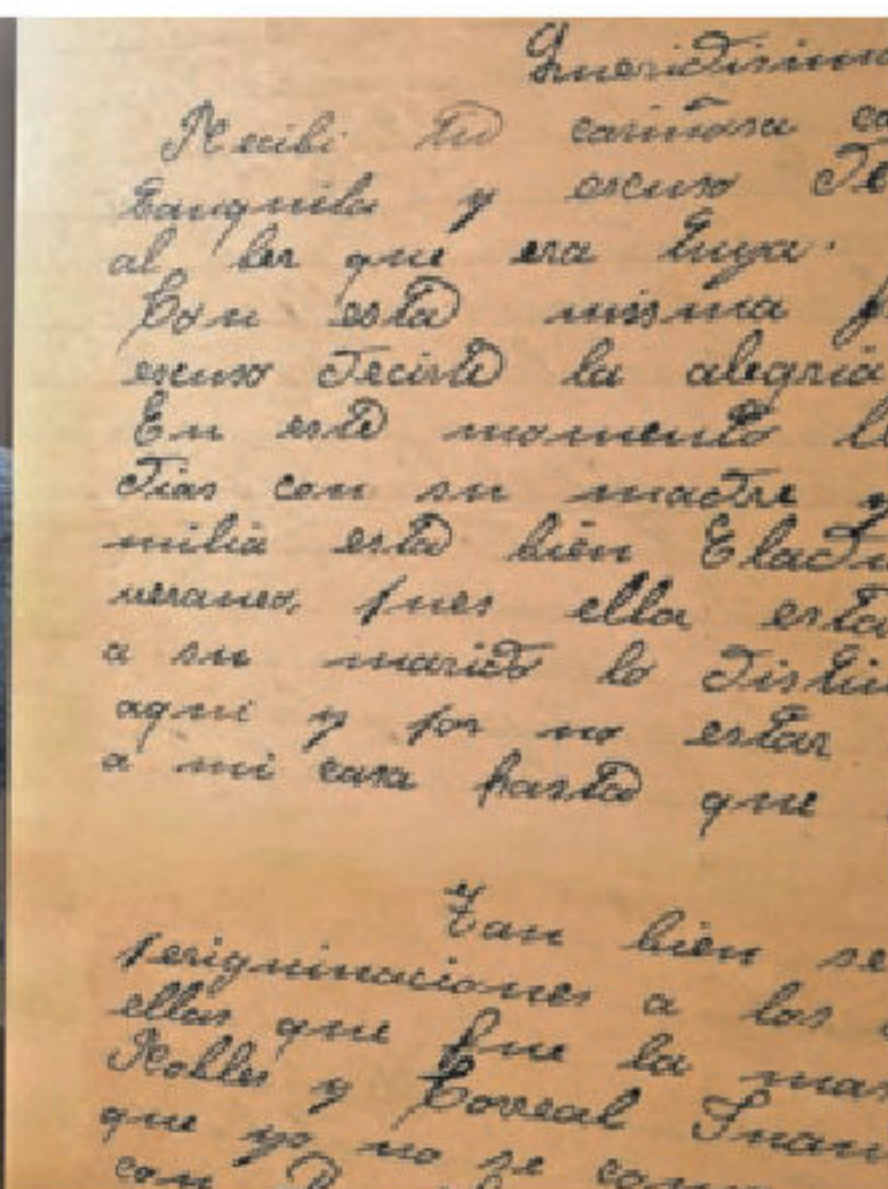 Queridisim
Recibi tu cariñosa ca
tanquila y escuso De
al ber que era tuya.
Con esta misma f
escuso Decirte la alegria
En este momento lle
Dias con su maDre y
milia esta bien ElaDi
veraneo, pues ella esta
a su mariDo lo Distin
aqui y por no estar
a mi casa hasta que
Tan bien se
periguinaciones a los
ellas que fue la mas
Robles y Correal Juan
que yo no se com
con